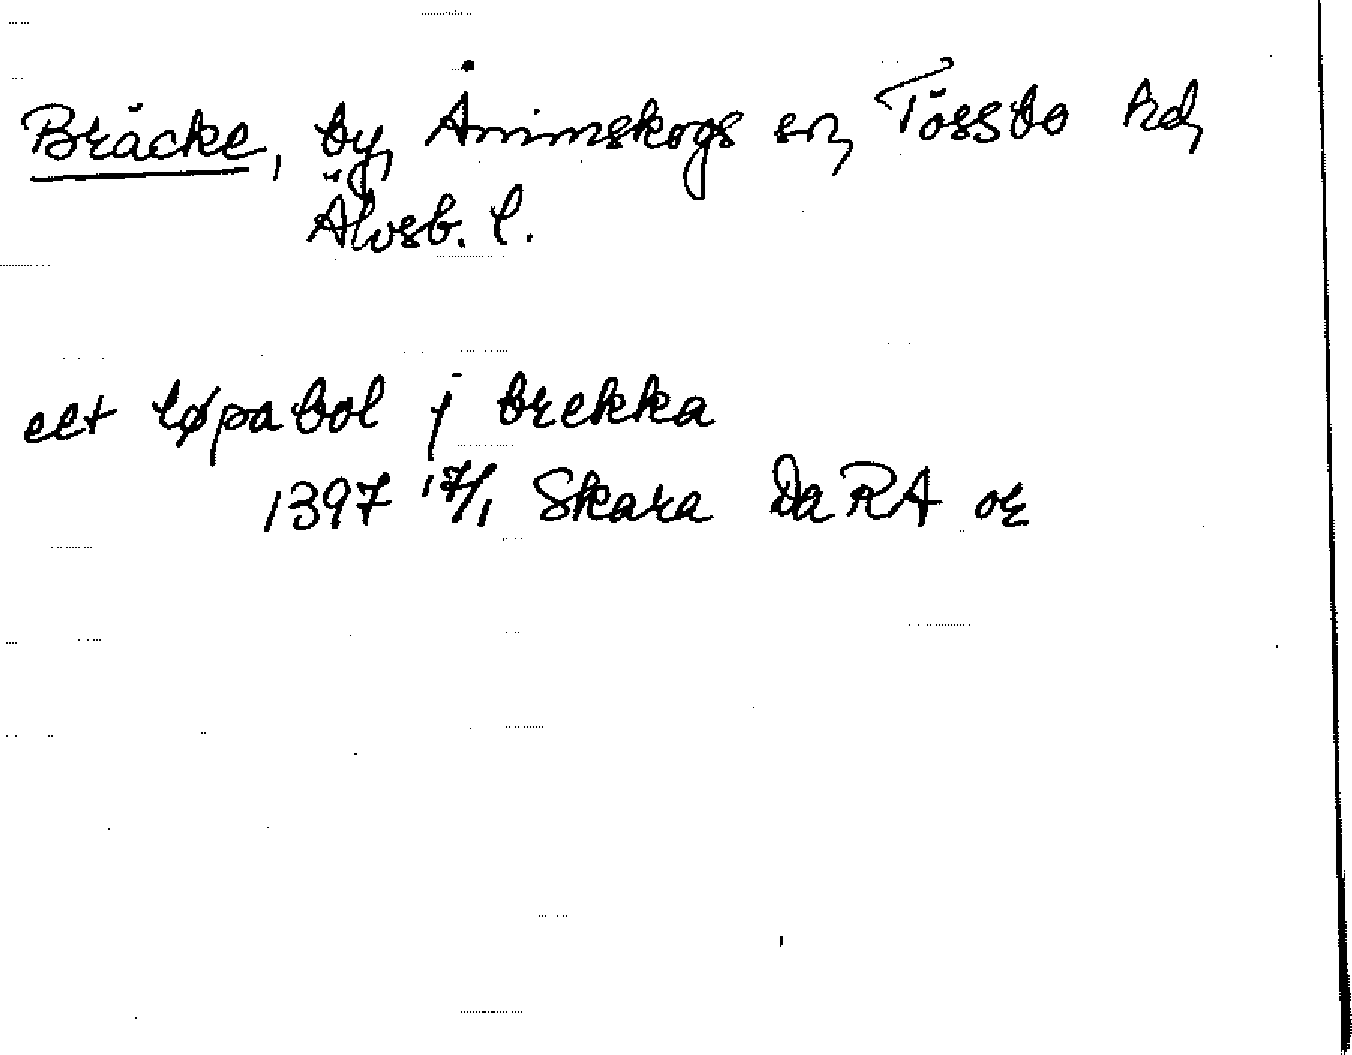 Bräcke, by, Ånimskogs sn, Tössbo hd,
Älvsb. l.
eet løpabol j brekka
1397 17/1 Skara DaRA or